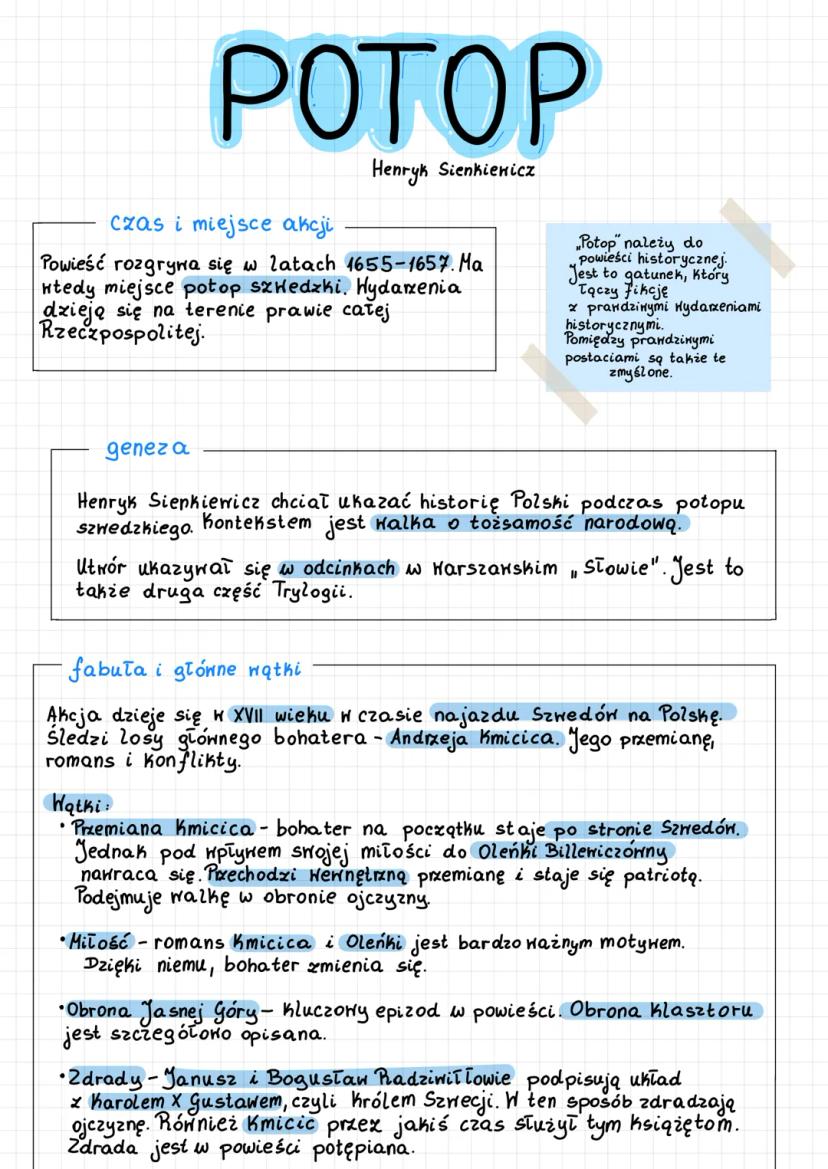 POTOP
Henryk Sienkiewicz
czas i miejsce akcji
Powieść rozgrywa się w latach 1655-1657. Ma
wtedy miejsce potop szwedzki. Wydarzenia
dzieją się na terenie prawie całej
Rzeczpospolitej.
„Potop" należy do
powieści historycznej.
Jest to gatunek, który
łączy fikcję
z prawdziwymi wydarzeniami
historycznymi.
Pomiędzy prawdziwymi
postaciami są także te
zmyślone.
geneza
Henryk Sienkiewicz chciał ukazać historię Polski podczas potopu
szwedzkiego. Kontekstem jest walka o tożsamość narodową.
Utwór ukazywał się w odcinkach w warszawskim „Słowie". Jest to
także druga część Trylogii.
fabuła i główne wątki
Akcja dzieje się w XVII wieku w czasie najazdu Szwedów na Polskę.
Śledzi losy głównego bohatera - Andrzeja Kmicica. Jego przemianę,
romans i konflikty.
Wątki:
• Przemiana Kmicica - bohater na początku staje po stronie Szwedów.
Jednak pod wpływem swojej miłości do Oleńki Billewiczówny
nawraca się. Przechodzi wewnętrzną przemianę i staje się patriotą.
Podejmuje walkę w obronie ojczyzny.
• Miłość - romans Kmicica i Oleńki jest bardzo ważnym motywem.
Dzięki niemu, bohater zmienia się.
• Obrona Jasnej Góry - kluczowy epizod w powieści. Obrona klasztoru
jest szczegółowo opisana.
• Zdrady - Janusz i Bogusław Radziwiłłowie podpisują układ
z Karolem X Gustawem, czyli królem Szwecji. W ten sposób zdradzają
ojczyznę. Również Kmicic przez jakiś czas służył tym książętom.
Zdrada jest w powieści potępiana.